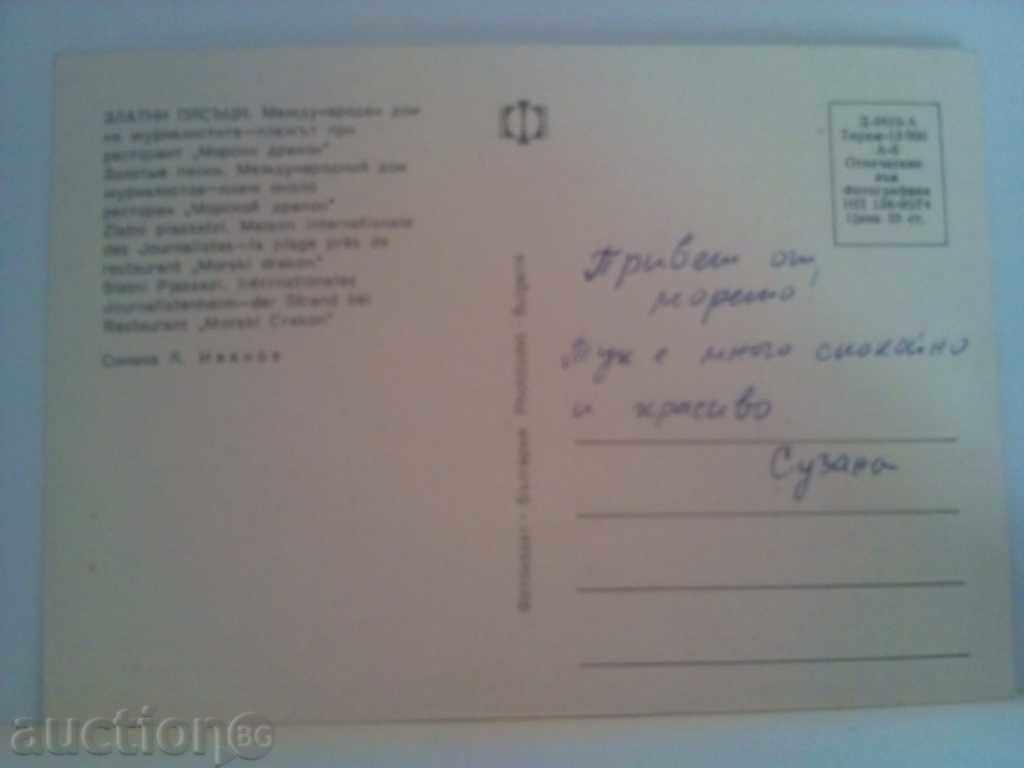 ЗЛАТНИ ПЯСЪЦИ. Международен дом
на журналистите—плажът при
ресторант „Морски дракон"
Золотые пески. Международный дом
журналистов—пляж около
ресторан „Морской дракон"
Zlatni piassatzi. Maison internationale
des Journalistes—la plage près de
restaurant „Morski drakon"
Internationales
Journalistenheim—der Strand bei
Restaurant „Morski Drakon"
Снимка Л. Иванов
Фотоиздат · България Photoizdat · Bulgaria
Тираж
А-6
Отпечатано
във
Фотографика
Цена
Привет от
морето!
Тук е много спокойно
и красиво
Сузана
auction BG